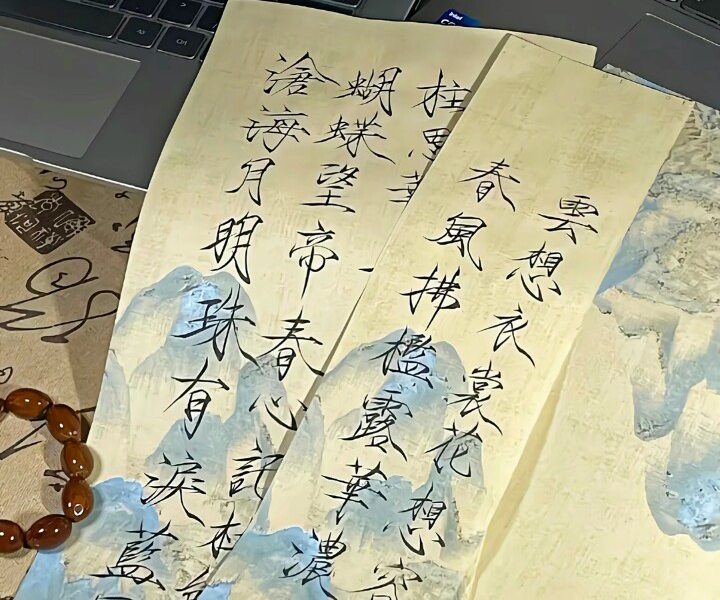 雲想衣裳花想容
春風拂檻露華濃
柱思華
蝴蝶望帝春心託杜
滄海月明珠有淚藍
intel
Ctrl